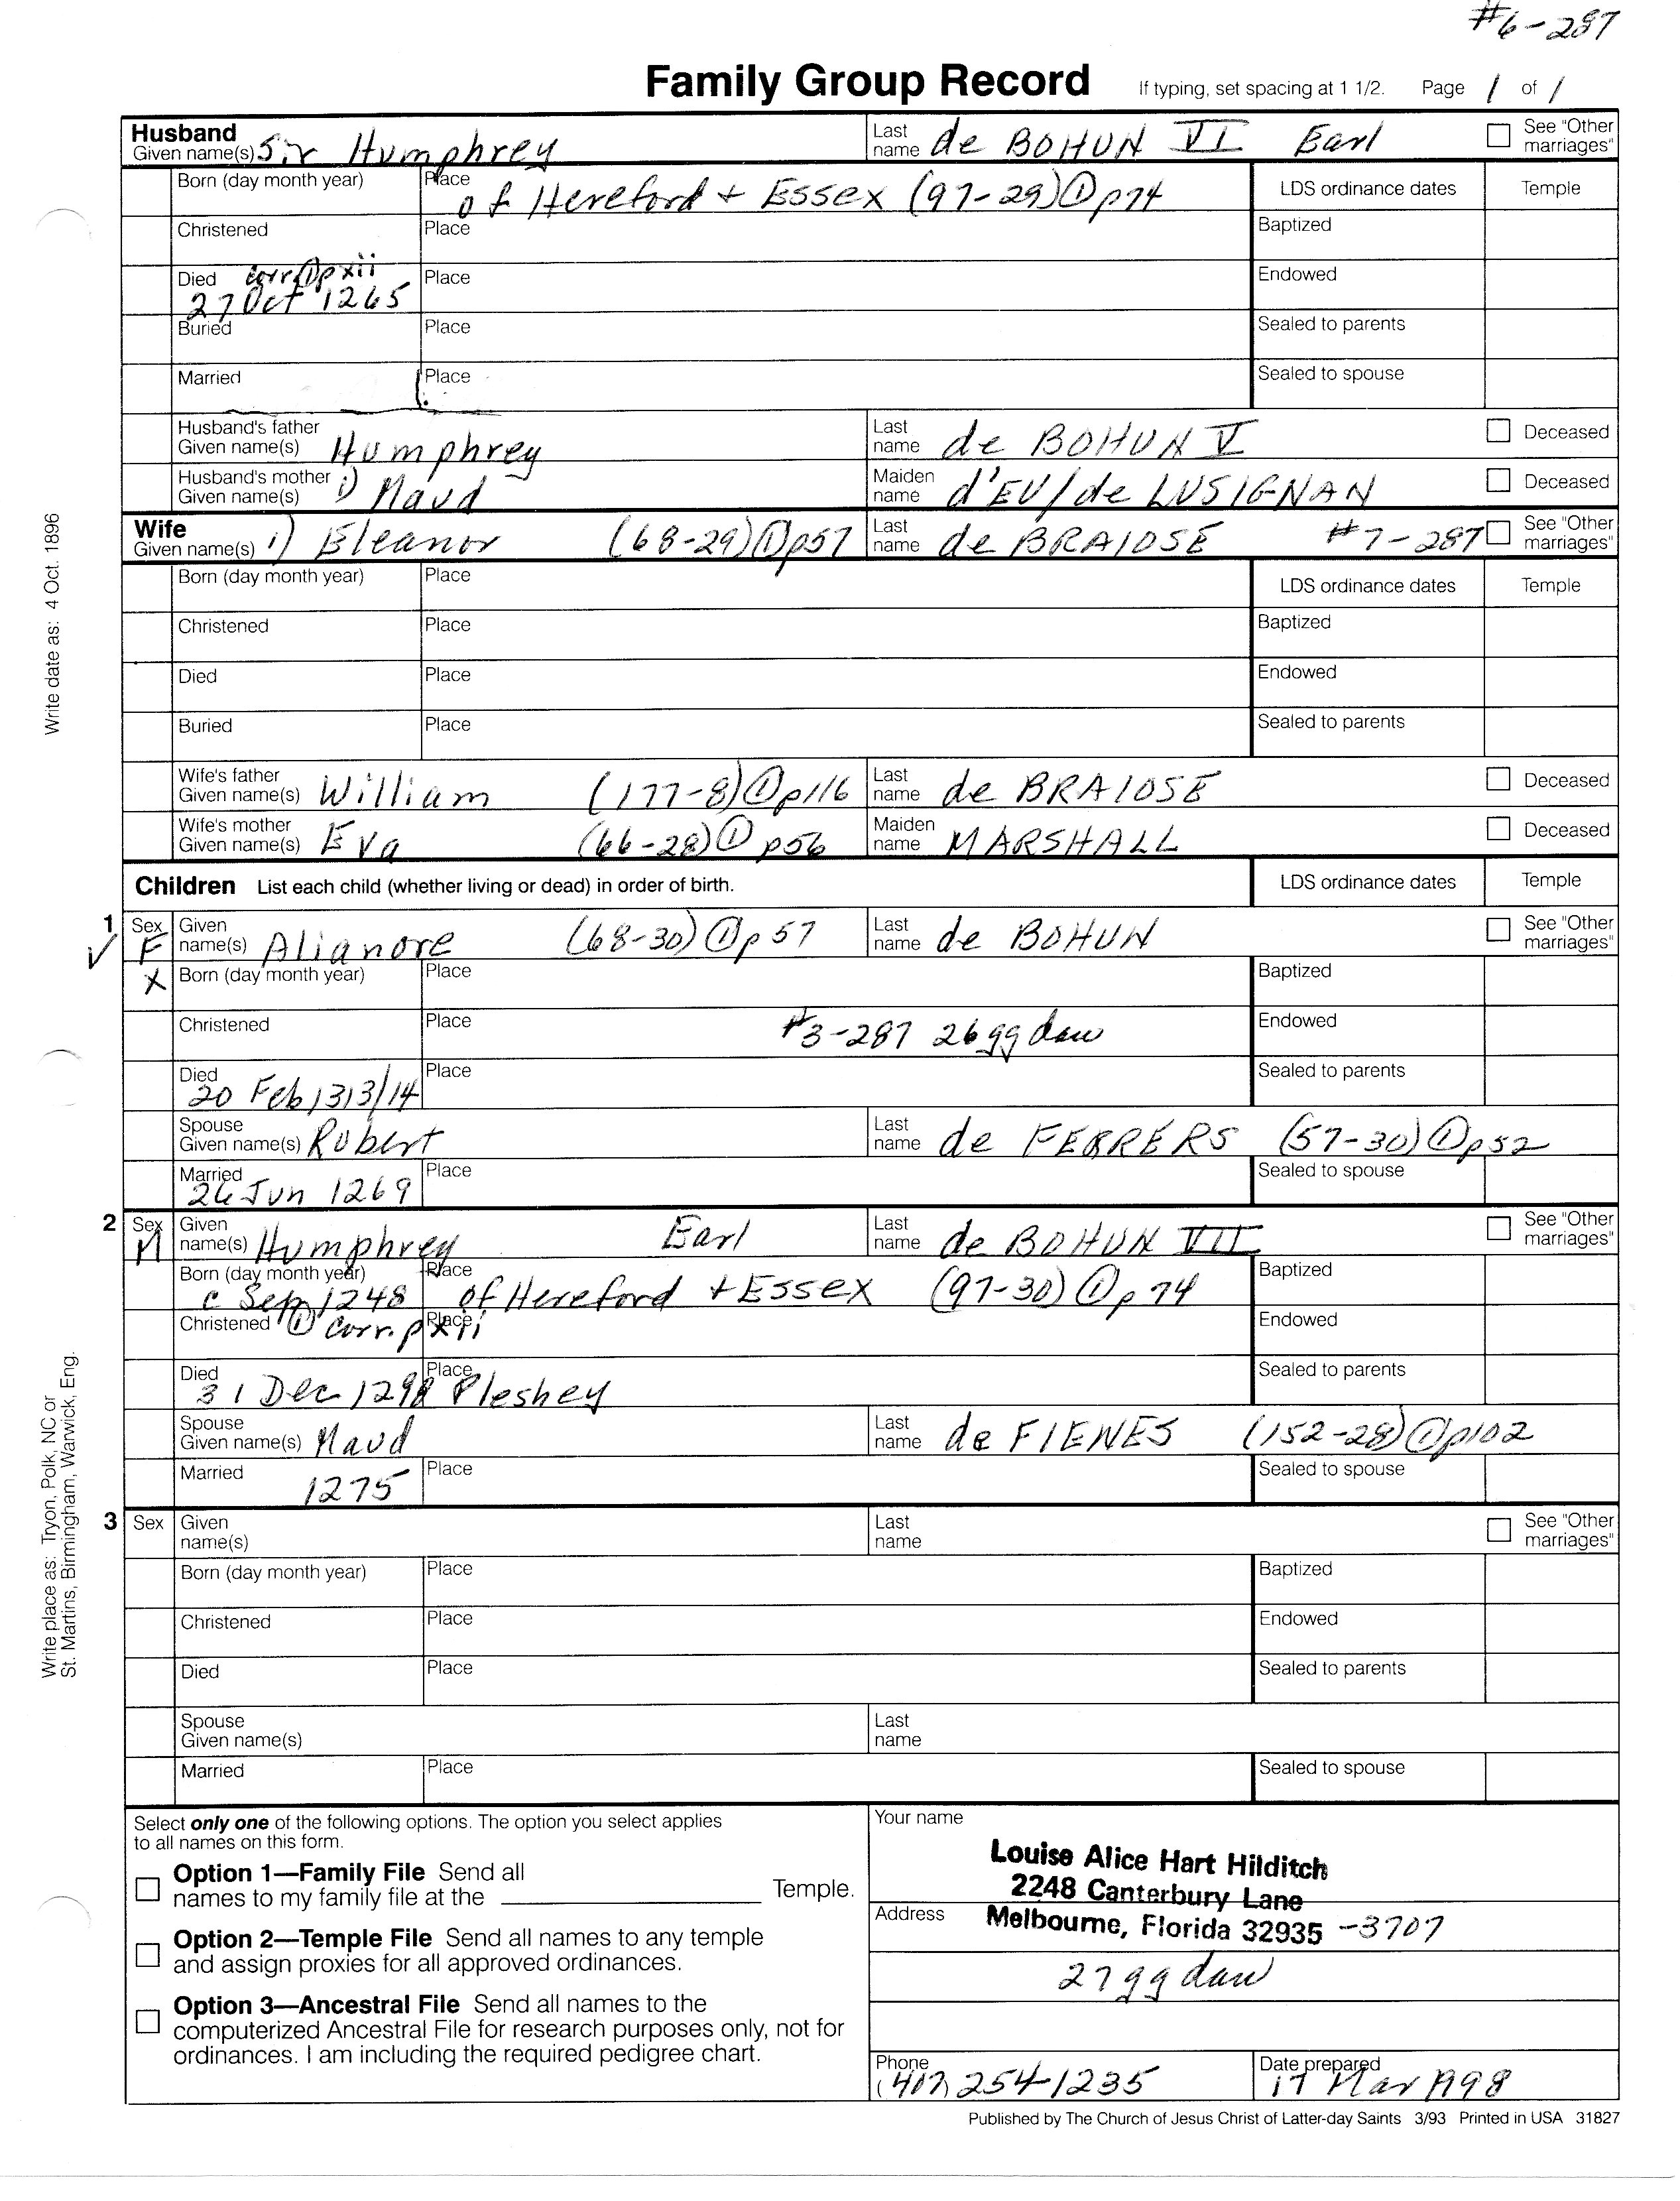 #6-287
Family Group Record If typing, set spacing at 1 1/2. Page 1 of 1
Husband
Given name(s) Sir Humphrey Last name de BOHUN VI Earl See "Other marriages"
Born (day month year) Place of Hereford + Essex (97-29)① p74 LDS ordinance dates Temple
Christened Place Baptized
Died corr ① p xii Place Endowed
27 Oct 1265
Buried Place Sealed to parents
Married Place Sealed to spouse
Husband's father Given name(s) Humphrey Last name de BOHUN V Deceased
Husband's mother Given name(s) 1) Maud Maiden name d'EU/de LUSIGNAN Deceased
Wife
Given name(s) 1) Eleanor (68-29)① p57 Last name de BRAIOSE #7-287 See "Other marriages"
Born (day month year) Place LDS ordinance dates Temple
Christened Place Baptized
Died Place Endowed
Buried Place Sealed to parents
Wife's father Given name(s) William (177-8)① p116 Last name de BRAIOSE Deceased
Wife's mother Given name(s) Eva (66-28)① p56 Maiden name MARSHALL Deceased
Children List each child (whether living or dead) in order of birth. LDS ordinance dates Temple
1 Sex F Given name(s) Alianore (68-30)① p57 Last name de BOHUN See "Other marriages"
X Born (day month year) Place Baptized
Christened Place #3-287 26 gg dau Endowed
Died 20 Feb 1313/14 Place Sealed to parents
Spouse Given name(s) Robert Last name de FERRERS (57-30)① p52
Married 26 Jun 1269 Place Sealed to spouse
2 Sex M Given name(s) Humphrey Earl Last name de BOHUN VII See "Other marriages"
Born (day month year) c Sep 1248 Place of Hereford + Essex (97-30)① p74 Baptized
Christened ① corr. p xii Place Endowed
Died 31 Dec 1298 Place Pleshey Sealed to parents
Spouse Given name(s) Maud Last name de FIENES (152-28)① p102
Married 1275 Place Sealed to spouse
3 Sex Given name(s) Last name See "Other marriages"
Born (day month year) Place Baptized
Christened Place Endowed
Died Place Sealed to parents
Spouse Given name(s) Last name
Married Place Sealed to spouse
Write date as: 4 Oct. 1896
Write place as: Tryon, Polk, NC or
St. Martins, Birmingham, Warwick, Eng.
Select only one of the following options. The option you select applies
to all names on this form.
Option 1—Family File Send all
names to my family file at the Temple.
Option 2—Temple File Send all names to any temple
and assign proxies for all approved ordinances.
Option 3—Ancestral File Send all names to the
computerized Ancestral File for research purposes only, not for
ordinances. I am including the required pedigree chart.
Your name
Louise Alice Hart Hilditch
2248 Canterbury Lane
Address Melbourne, Florida 32935 -3707
27 gg dau
Phone (407) 254-1235 Date prepared 17 Mar 1998
Published by The Church of Jesus Christ of Latter-day Saints 3/93 Printed in USA 31827